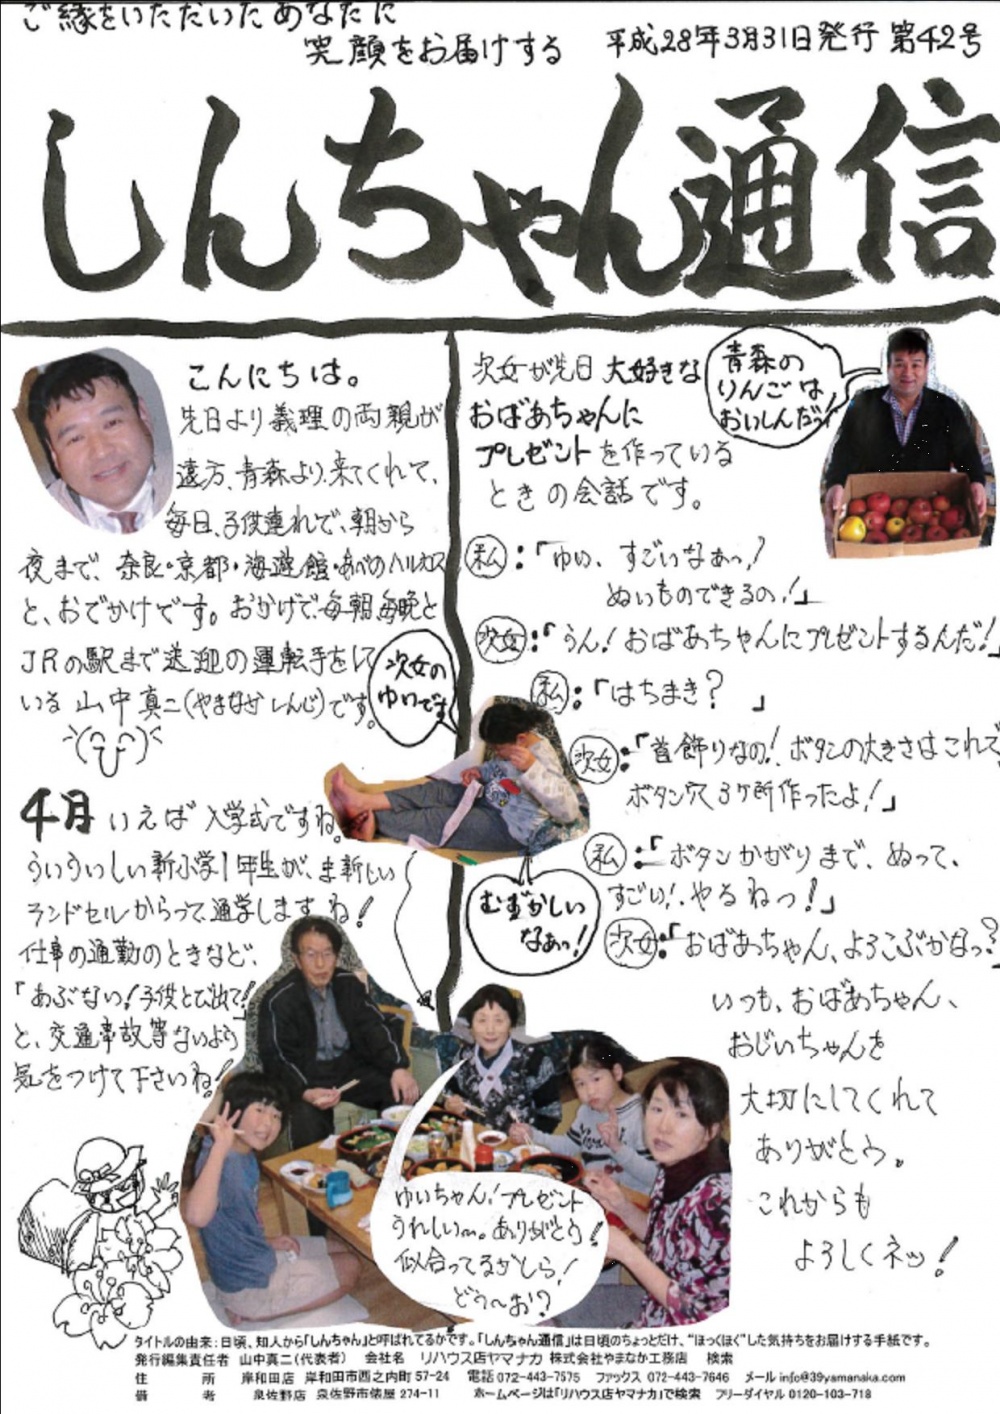 ご縁をいただいたあなたに
笑顔をお届けする
平成28年3月31日発行 第42号
しんちゃん通信
こんにちは。
先日より義理の両親が
遠方、青森より来てくれて、
毎日、子供連れで、朝から
夜まで、奈良・京都・海遊館・あべのハルカス
と、おでかけです。おかげで、毎朝、毎晩と
JRの駅まで送迎の運転手をして
いる 山中真二(やまなか しんじ)です。
4月 いえば 入学式ですね。
ういういしい新小学1年生が、ま新しい
ランドセルからって、通学しますね!
仕事の通勤のときなど、
「あぶない!子供とび出て!」
と、交通事故等ないよう
気をつけて下さいね!
次女が先日 大好きな
おばあちゃんに
プレゼントを作っている
ときの会話です。
青森の
りんごは
おいしんだっ!
私:「ゆい、すごいなぁっ!
ぬいものできるの!」
次女:「うん!おばあちゃんにプレゼントするんだ!」
私:「はちまき? 」
次女:「首飾りなの!ボタンの大きさはこれで
ボタン穴3ヶ所作ったよ!」
私:「ボタンかがりまで、ぬって、
すごい!、やるねっ!」
次女:「おばあちゃん、よろこぶかなっ?
次女の
ゆいです
むずかしい
なぁっ!
いつも、おばあちゃん、
おじいちゃんを
大切にしてくれて
ありがとう。
これからも
よろしくネッ!
ゆいちゃん!プレゼント
うれしい〜。ありがとう!
似合ってるかしら!
どう〜お?
タイトルの由来:日頃、知人から「しんちゃん」と呼ばれてるかです。「しんちゃん通信」は日頃のちょっとだけ、“ほっくほく”した気持ちをお届けする手紙です。
発行編集責任者 山中真二(代表者) 会社名 リハウス店ヤマナカ 株式会社やまなか工務店 検索
住 所 岸和田店 岸和田市西之内町 57-24 電話 072-443-7575 ファックス 072-443-7646 メール info@39yamanaka.com
備 考 泉佐野店 泉佐野市俵屋 274-11 ホームページは「リハウス店ヤマナカ」で検索 フリーダイヤル 0120-103-718